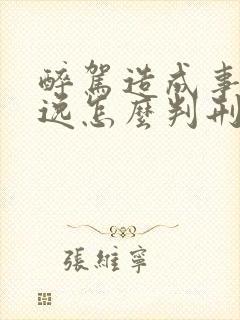 醉駕造成事
逸怎麼判刑
張維寧